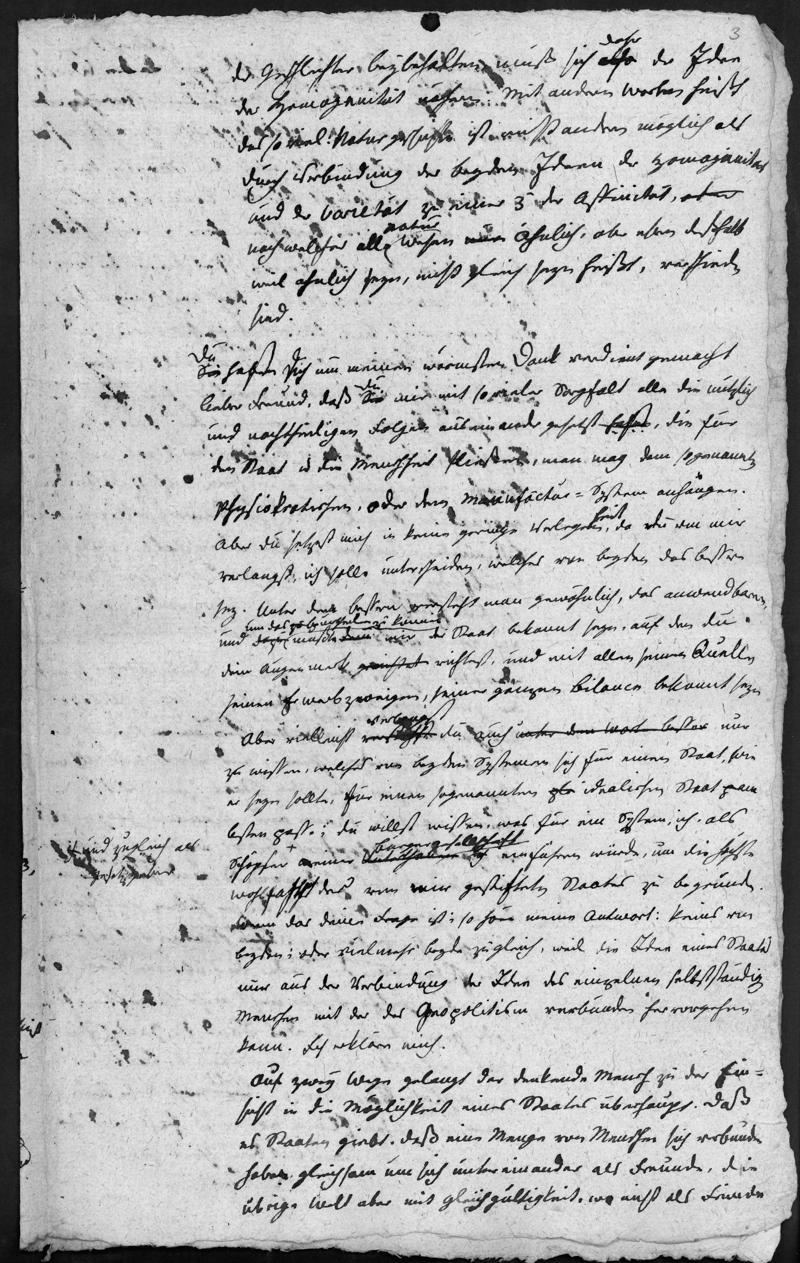 3
daher
der Geschlechter beybehalten, muß sich also der Idee
der Homogenität nähern. Mit andern Worten heißt
das so viel: Naturgeschichte ist nicht anders möglich als
durch Verbindung der beyden Ideen der Homogenität
und der Varietät zu einer 3 der Affinität, oder
natur
nach welcher alle Wesen nur ähnlich, aber eben deßhalb
weil ähnlich seyn, nicht gleich seyn heißt, verschieden
sind.
Du
Sie haben Dich um meinen wärmsten Dank verdient gemacht
lieber Freund, daß Du Sie mir mit so vieler Sorgfalt alle die nützlich
und nachtheiligen Folgen auseinander gesetzt hast, die für
den Staat u die Menschheit fließen, man mag dem sogenannten
Physiokratischen, oder dem Manufactur=System anhängen.
Aber du setzest mich in keine geringe Verlegenheit, da du von mir
verlangst, ich solle unterscheiden, welches von beyden das bessere
sey. Unter dem bessern versteht man gewöhnlich, das anwendbarere,
um das zu beurtheilen zu können
und dazu müßte mir der Staat bekannt seyn, auf den du
dein Augenmerk gerichtet richtest, und mit allen seinen Quellen
seinen Erwerbzweigen, seiner ganzen Bilance bekannt seyn
verlangst
Aber vielleicht du auch unter dem Wort besser nur
zu wissen, welches von beyden Systemen sich für einen Staat, wie
er seyn sollte, für einen sogenannten idealischen Staat am
besten passe; du willst wissen, was für ein System, ich, als
+ und zugleich als
Gesetzgeber
bürgergesellschaft
Schöpfer + einer einführen würde, um die höchste
Wohlfahrt des von mir gestifteten Staates zu begründen.
Wenn das deine Frage ist; so höre meine Antwort: Keins von
beyden; oder vielmehr beyde zugleich, weil die Idee eines Staats
nur aus der Verbindung der Idee des einzelnen selbstständig
Menschen mit der des Geopolitism verbunden hervorgehen
kann. Ich erkläre mich.
Auf zwey Wege gelangt der denkende Mensch zu der Ein=
sicht in die Möglichkeit eines Staates überhaupt. Daß
es Staaten giebt, daß eine Menge von Menschen sich verbunden
haben gleichsam um sich untereinander als Freunde, die
übrige Welt aber mit Gleichgültigkeit, wo nicht als Feinde